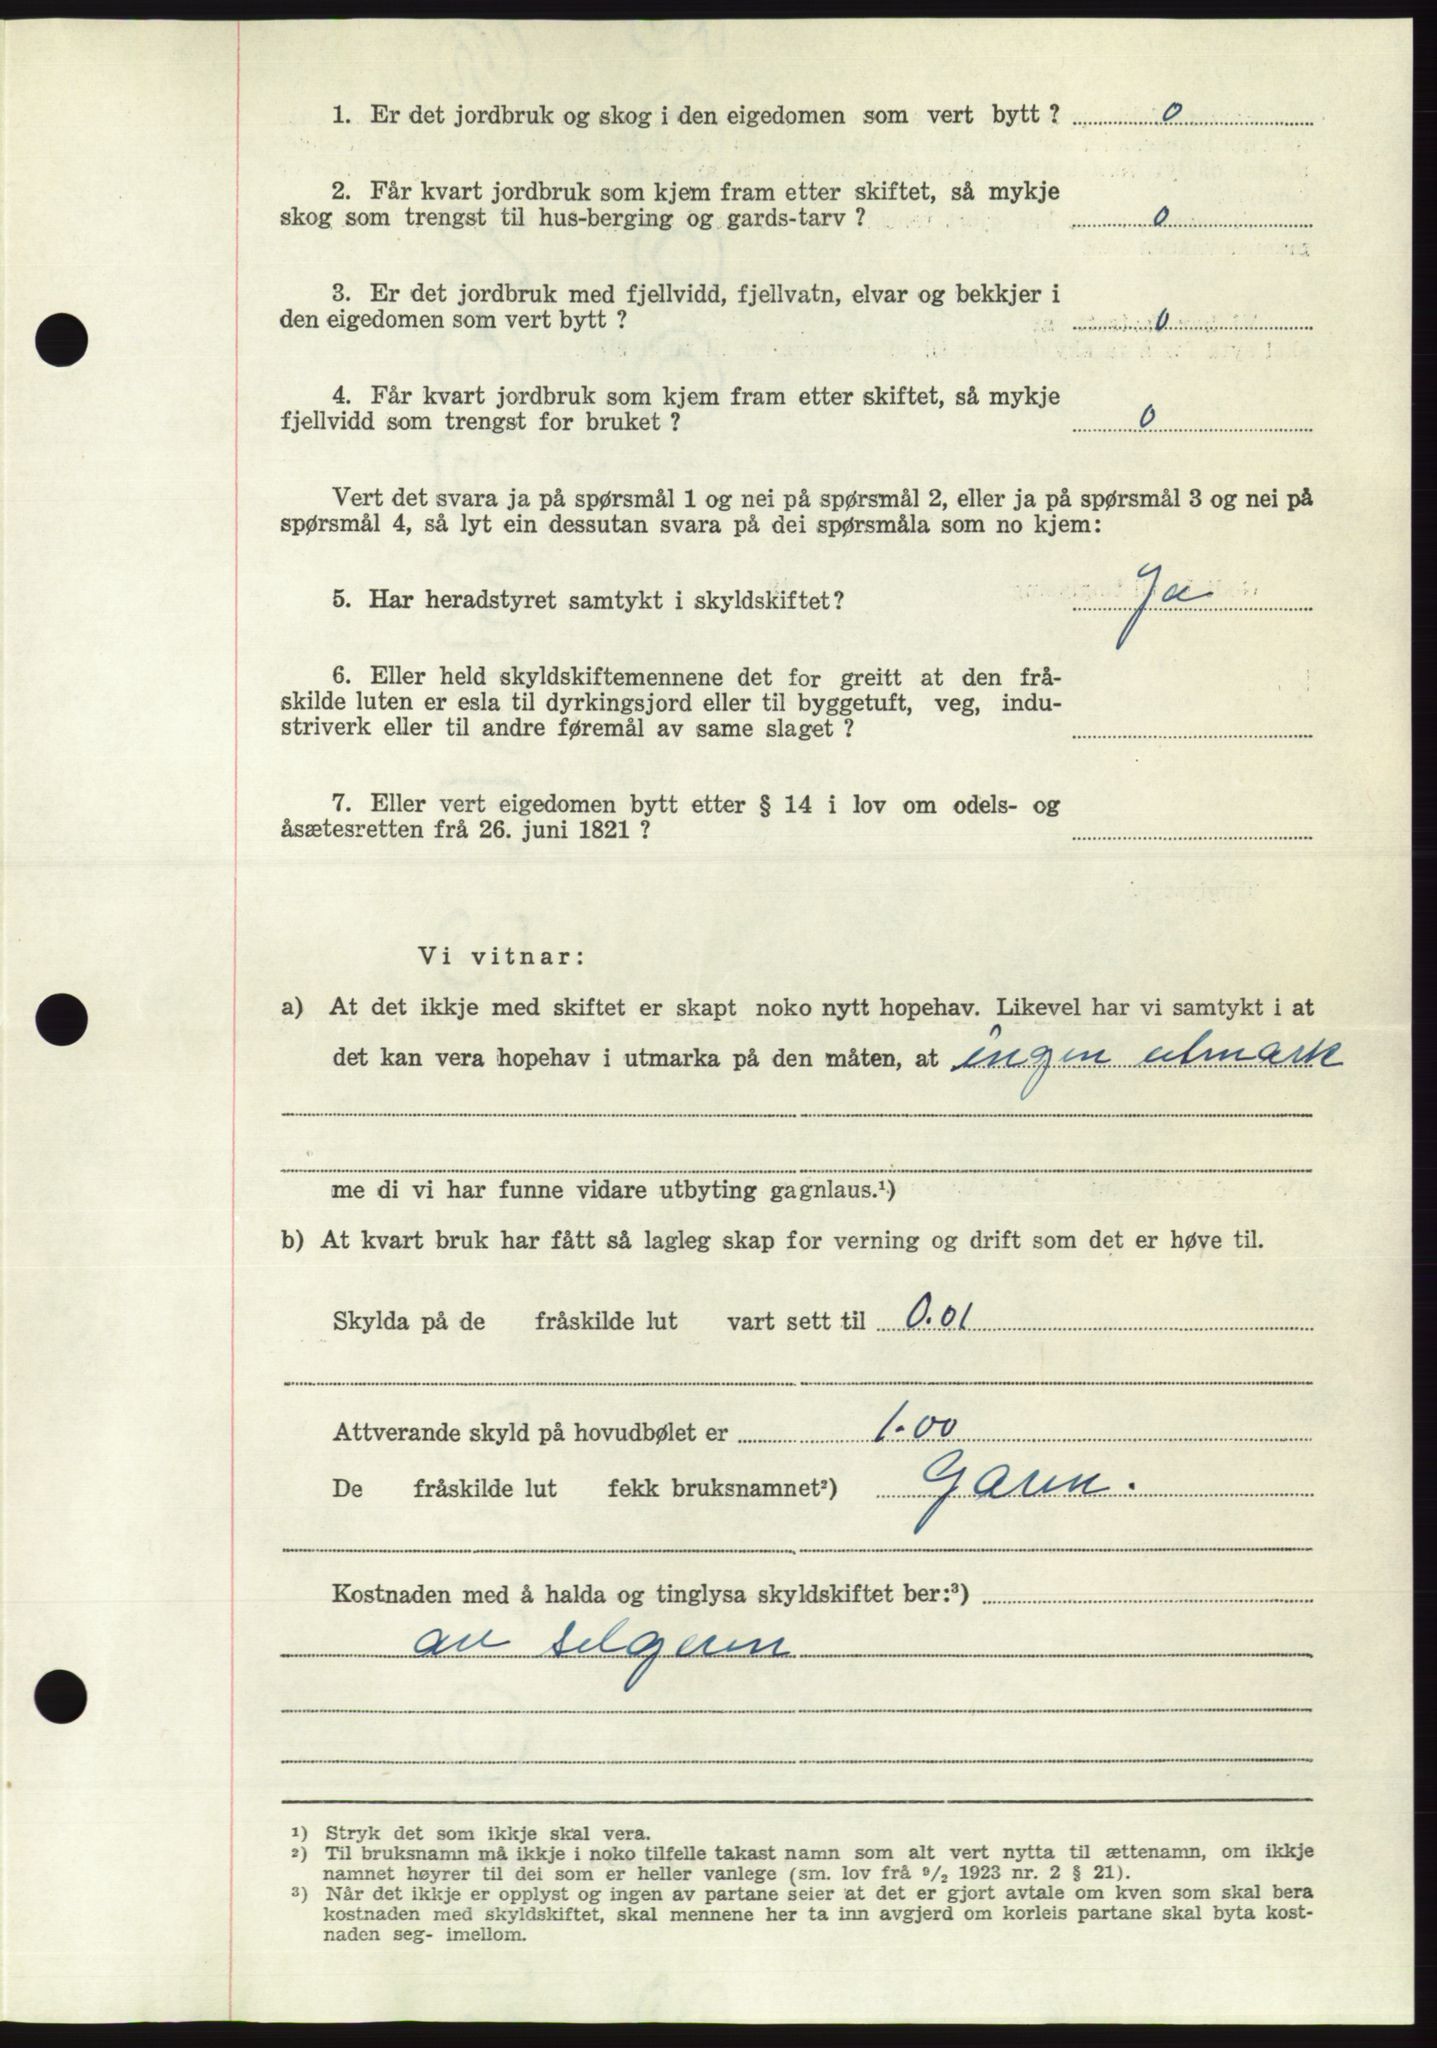 1. Er det jordbruk og skog i den eigedomen som vert bytt ? 0
2. Får kvart jordbruk som kjem fram etter skiftet, så mykje
skog som trengst til hus-berging og gards-tarv ? 0
3. Er det jordbruk med fjellvidd, fjellvatn, elvar og bekkjer i
den eigedomen som vert bytt ? 0
4. Får kvart jordbruk som kjem fram etter skiftet, så mykje
fjellvidd som trengst for bruket ? 0
Vert det svara ja på spørsmål 1 og nei på spørsmål 2, eller ja på spørsmål 3 og nei på
spørsmål 4, så lyt ein dessutan svara på dei spørsmåla som no kjem:
5. Har heradstyret samtykt i skyldskiftet? Ja
6. Eller held skyldskiftemennene det for greitt at den frå-
skilde luten er esla til dyrkingsjord eller til byggetuft, veg, indu-
striverk eller til andre føremål av same slaget ?
7. Eller vert eigedomen bytt etter § 14 i lov om odels- og
åsætesretten frå 26. juni 1821 ?
Vi vitnar:
a) At det ikkje med skiftet er skapt noko nytt hopehav. Likevel har vi samtykt i at
det kan vera hopehav i utmarka på den måten, at ingen utmark
me di vi har funne vidare utbyting gagnlaus.¹)
b) At kvart bruk har fått så lagleg skap for verning og drift som det er høve til.
Skylda på de fråskilde lut vart sett til 0.01
Attverande skyld på hovudbølet er 1.00
De fråskilde lut fekk bruksnamnet²) Garen.
Kostnaden med å halda og tinglysa skyldskiftet ber:³)
av selgeren
¹) Stryk det som ikkje skal vera.
²) Til bruksnamn må ikkje i noko tilfelle takast namn som alt vert nytta til ættenamn, om ikkje
namnet høyrer til dei som er heller vanlege (sm. lov frå ⁹/₂ 1923 nr. 2 § 21).
³) Når det ikkje er opplyst og ingen av partane seier at det er gjort avtale om kven som skal bera
kostnaden med skyldskiftet, skal mennene her ta inn avgjerd om korleis partane skal byta kost-
naden seg- imellom.